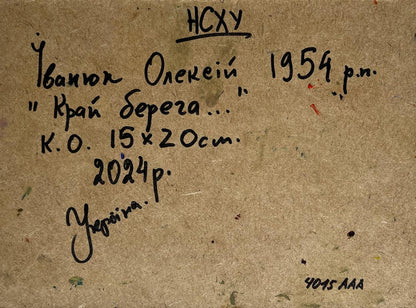 НСХУ
Іванюк Олексій 1954 р.н.
"Край берега..."
К.О. 15×20cm.
2024р.
Україна.
4015 AAA